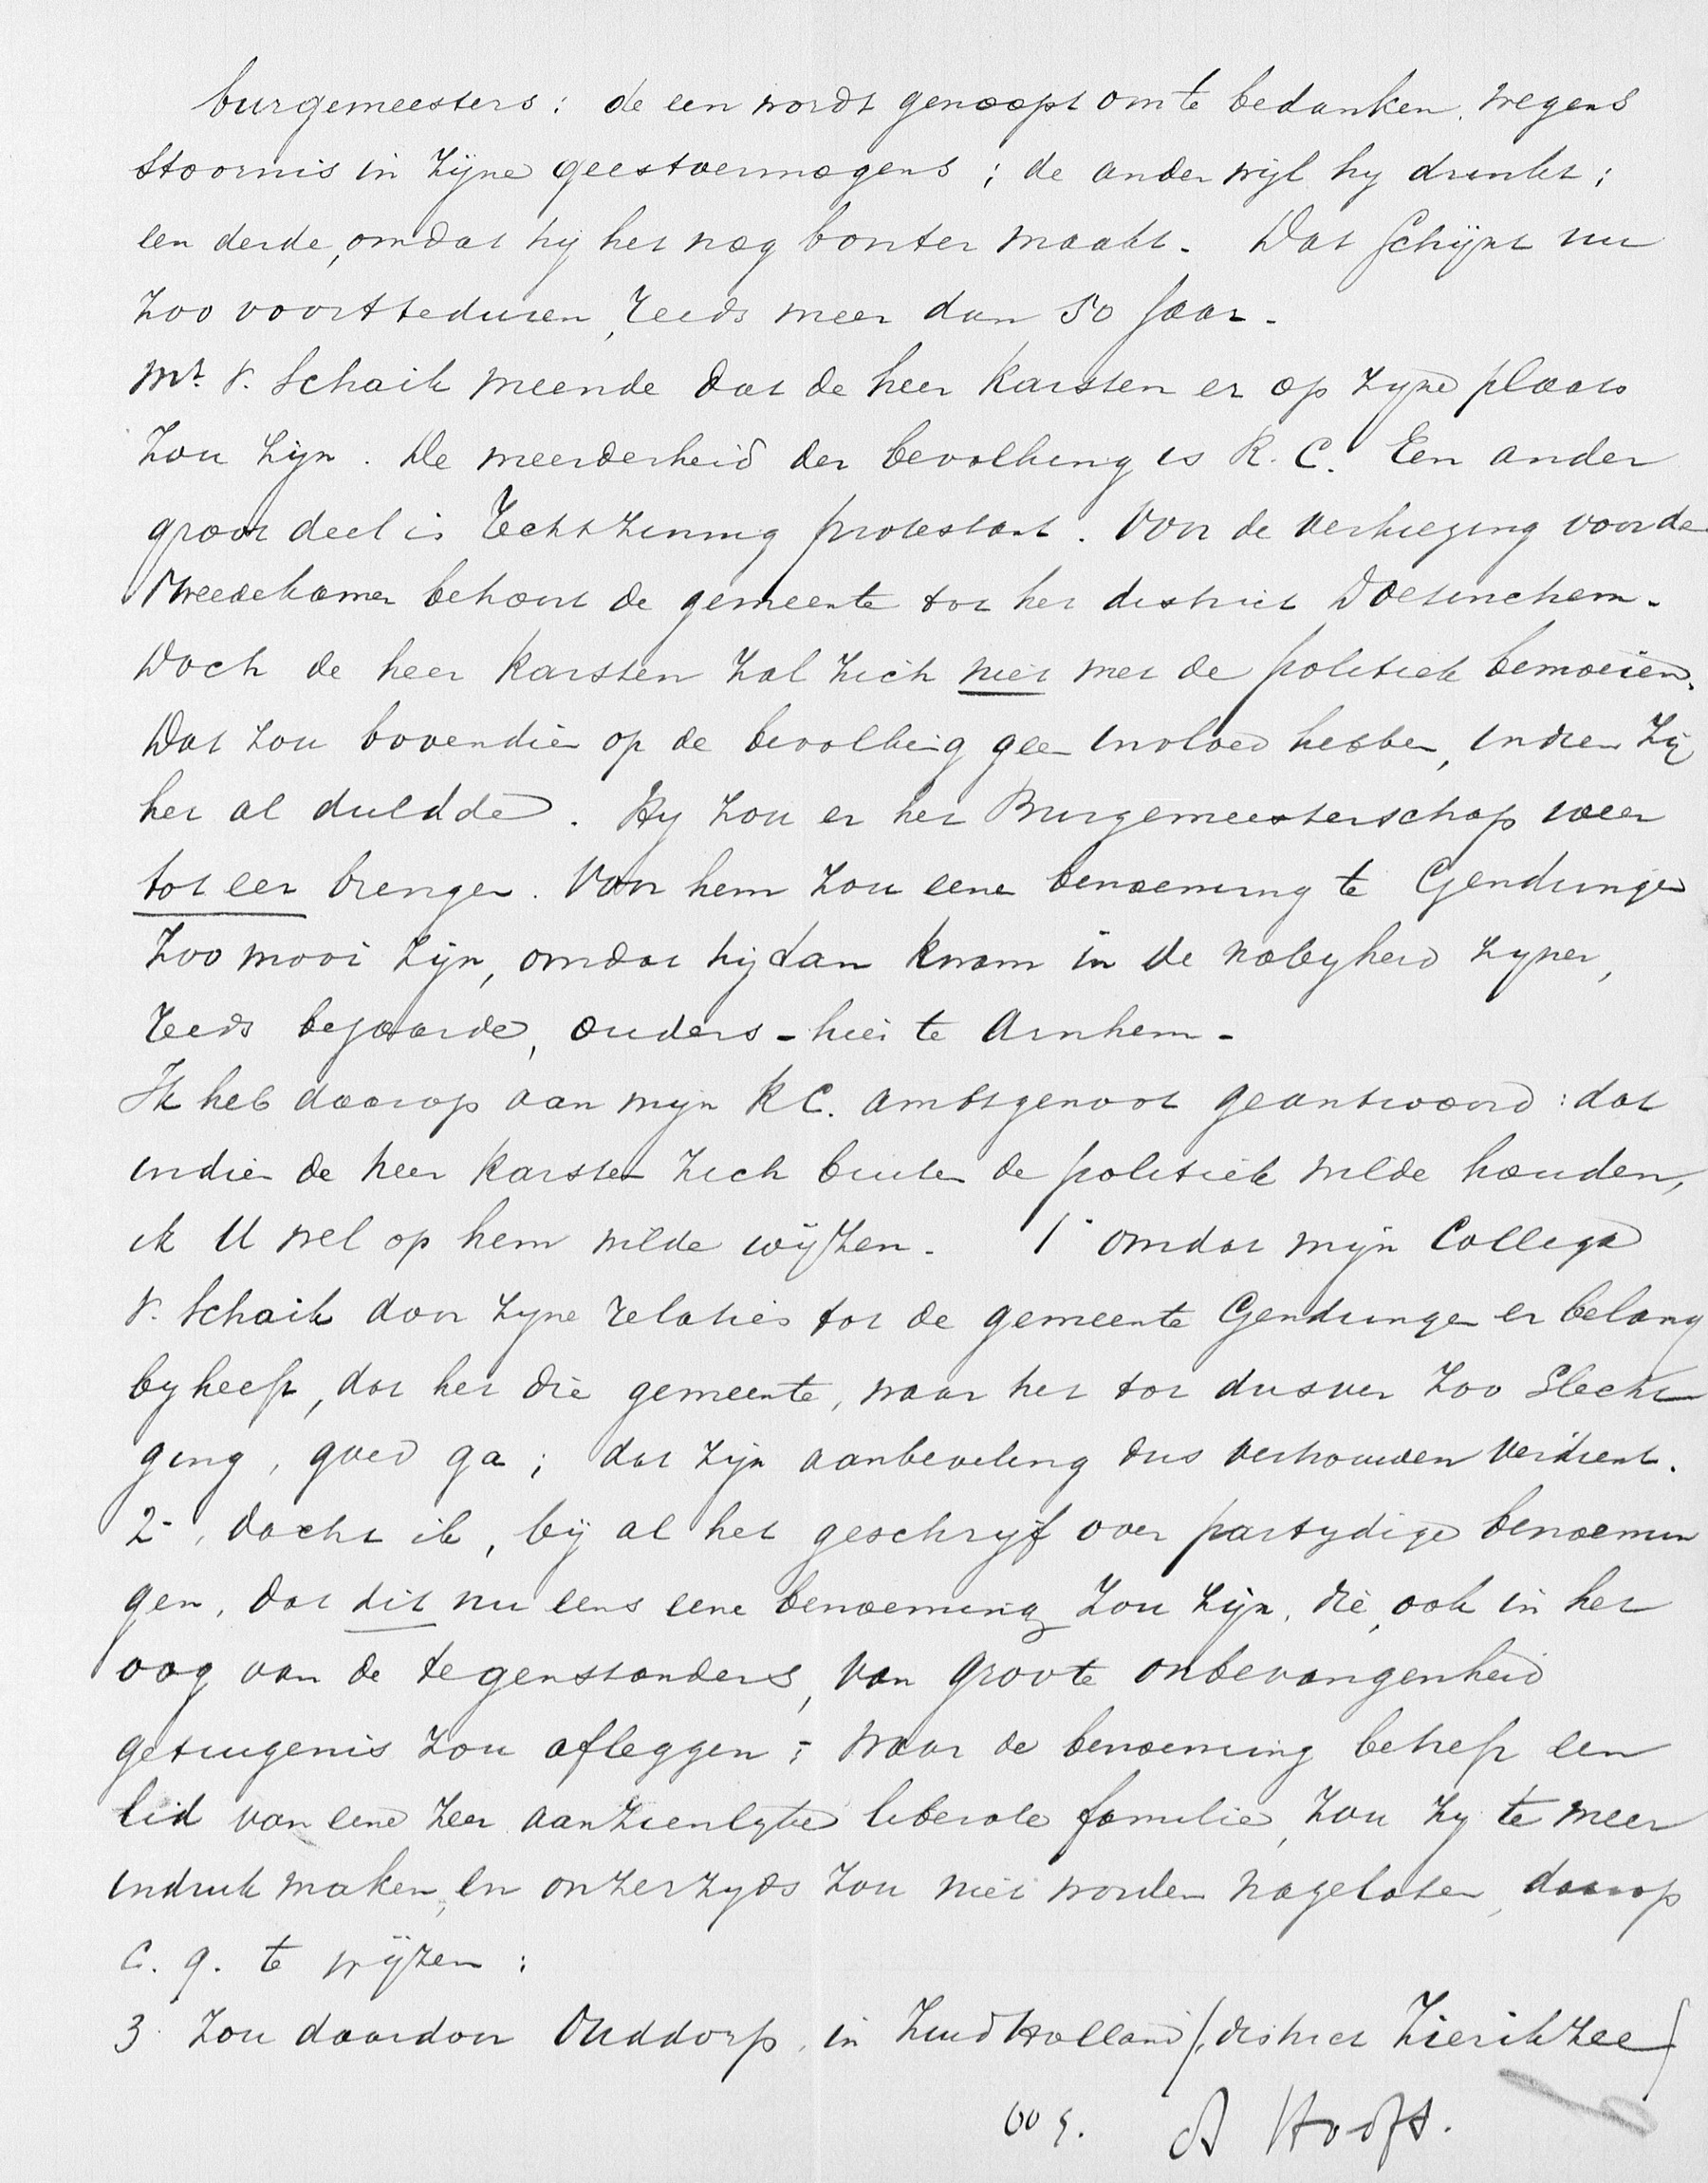 burgemeesters: de een wordt genoopt om te bedanken, wegens
stoornis in zijne geestvermogens; de ander wijl hy drinkt;
een derde, omdat hij het nog bonter maakt. Dat schijnt nu
zoo voortteduren, reeds meer dan 50 jaar.
Mr. v. Schaik meende dat de heer Karsten er op zyne plaats
zou zijn. De meerderheid der bevolking is R.C. Een ander
groot deel is rechtzinnig protestant. Voor de verkiezing voor de
Tweedekamer behoort de gemeente tot het district Doetinchem.
Doch de heer Karsten zal zich niet met de politiek bemoeien.
Dat zou bovendien op de bevolking geen invloed hebben, indien zij
het al duldde. Hy zou er het Burgemeesterschap weer
tot eer brengen. Voor hem zou eene benoeming te Gendringen
zoo mooi zijn, omdat hij dan kwam in de nabyheid zyner,
reeds bejaarde, ouders - hier te Arnhem.
Ik heb daarop aan mijn R.C. ambtgenoot geantwoord: dat
indien de heer Karsten zich buiten de politiek wilde houden,
ik U wel op hem wilde wijzen. 1° omdat mijn Collega
v. Schaik door zyne relaties tot de gemeente Gendringen er belang
by heeft, dat het die gemeente, waar het tot dusver zoo slecht
ging, goed ga; dat zijn aanbeveling dus vertrouwen verdient.
2°, dacht ik, bij al het geschrijf over partydige benoemin
gen, dat dit nu eens eene benoeming zou zijn, die, ook in het
oog van de tegenstanders, van groote onbevangenheid
getuigenis zou afleggen; waar de benoeming betreft een
lid van eene zeer aanzienlyke liberale familie, zou zy te meer
indruk maken, en onzerzyds zou niet worden nagelaten, daarop
c.q. te wijzen;
3° zou daardoor Ouddorp, in Zuid Holland (district Zierikzee)
A Hooft.